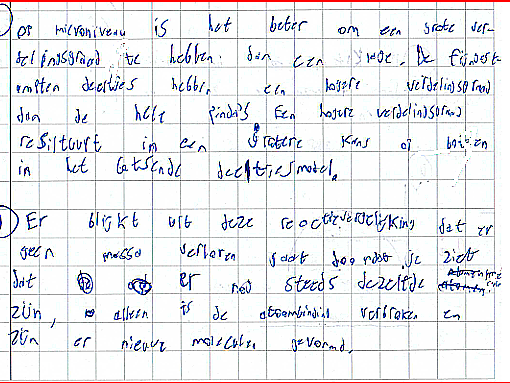 op microniveau is het beter om een grote ver-
delingsgraad te hebben dan een lage. De fijngest-
ampten deeltjes hebben een hogere verdelingsgraad
dan de hele pinda's Een hogere verdelingsgraad
resulteert in een grotere kans op botsen
in het botsende deeltjesmodel.
Er blijkt uit deze reactievergelijking dat er
geen massa verloren gaat doordat je ziet
dat er nog steeds dezelfde
zijn, alleen is de atoombinding verbroken en
zijn er nieuwe moleculen gevormd.